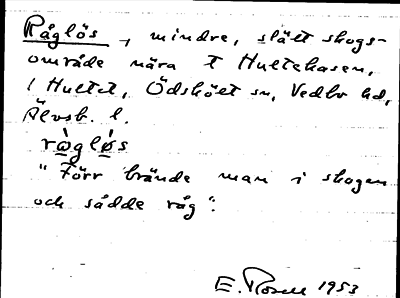 Råglös, mindre, slätt skogs-
område nära T Hultekasen,
1 Hultet, Ödskölt sn, Vedbo hd,
Älvsb. l.
rògløs
"Förr brände man i skogen
och sådde råg".
E. Rosell 1953